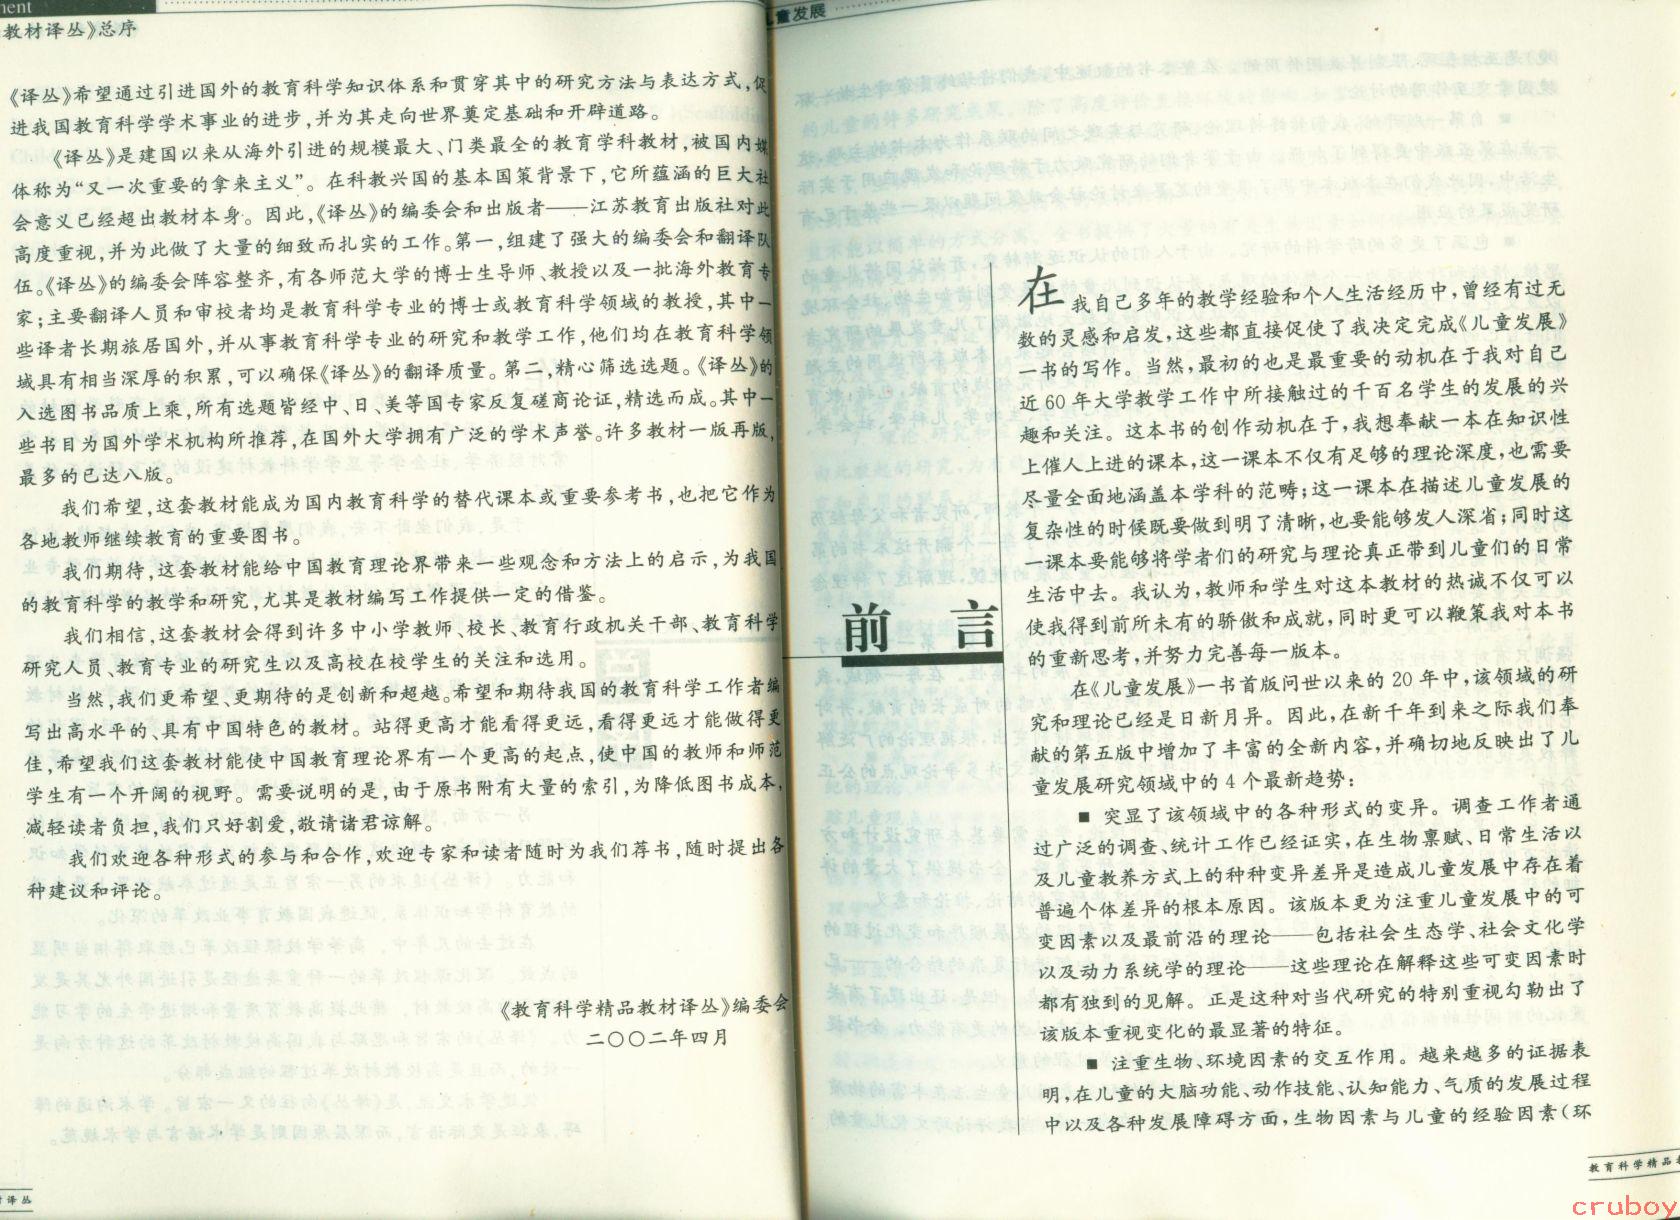 ment
教材译丛》总序
《译丛》希望通过引进国外的教育科学知识体系和贯穿其中的研究方法与表达方式,促
进我国教育科学学术事业的进步,并为其走向世界奠定基础和开辟道路。
《译丛》是建国以来从海外引进的规模最大、门类最全的教育学科教材,被国内媒
体称为“又一次重要的拿来主义”。在科教兴国的基本国策背景下,它所蕴涵的巨大社
会意义已经超出教材本身。因此,《译丛》的编委会和出版者——江苏教育出版社对此
高度重视,并为此做了大量的细致而扎实的工作。第一,组建了强大的编委会和翻译队
伍。《译丛》的编委会阵容整齐,有各师范大学的博士生导师、教授以及一批海外教育专
家;主要翻译人员和审校者均是教育科学专业的博士或教育科学领域的教授,其中一
些译者长期旅居国外,并从事教育科学专业的研究和教学工作,他们均在教育科学领
域具有相当深厚的积累,可以确保《译丛》的翻译质量。第二,精心筛选选题。《译丛》的
入选图书品质上乘,所有选题皆经中、日、美等国专家反复磋商论证,精选而成。其中一
些书目为国外学术机构所推荐,在国外大学拥有广泛的学术声誉。许多教材一版再版,
最多的已达八版。
我们希望,这套教材能成为国内教育科学的替代课本或重要参考书,也把它作为
各地教师继续教育的重要图书。
我们期待,这套教材能给中国教育理论界带来一些观念和方法上的启示,为我国
的教育科学的教学和研究,尤其是教材编写工作提供一定的借鉴。
我们相信,这套教材会得到许多中小学教师、校长、教育行政机关干部、教育科学
研究人员、教育专业的研究生以及高校在校学生的关注和选用。
当然,我们更希望、更期待的是创新和超越。希望和期待我国的教育科学工作者编
写出高水平的、具有中国特色的教材。站得更高才能看得更远,看得更远才能做得更
佳,希望我们这套教材能使中国教育理论界有一个更高的起点,使中国的教师和师范
学生有一个开阔的视野。需要说明的是,由于原书附有大量的索引,为降低图书成本,
减轻读者负担,我们只好割爱,敬请诸君谅解。
我们欢迎各种形式的参与和合作,欢迎专家和读者随时为我们荐书,随时提出各
种建议和评论。
《教育科学精品教材译丛》编委会
二〇〇二年四月
译丛
儿童发展
前言
在我自己多年的教学经验和个人生活经历中,曾经有过无
数的灵感和启发,这些都直接促使了我决定完成《儿童发展》
一书的写作。当然,最初的也是最重要的动机在于我对自己
近60年大学教学工作中所接触过的千百名学生的发展的兴
趣和关注。这本书的创作动机在于,我想奉献一本在知识性
上催人上进的课本,这一课本不仅有足够的理论深度,也需要
尽量全面地涵盖本学科的范畴;这一课本在描述儿童发展的
复杂性的时候既要做到明了清晰,也要能够发人深省;同时这
一课本要能够将学者们的研究与理论真正带到儿童们的日常
生活中去。我认为,教师和学生对这本教材的热诚不仅可以
使我得到前所未有的骄傲和成就,同时更可以鞭策我对本书
的重新思考,并努力完善每一版本。
在《儿童发展》一书首版问世以来的20年中,该领域的研
究和理论已经是日新月异。因此,在新千年到来之际我们奉
献的第五版中增加了丰富的全新内容,并确切地反映出了儿
童发展研究领域中的4个最新趋势:
■ 突显了该领域中的各种形式的变异。调查工作者通
过广泛的调查、统计工作已经证实,在生物禀赋、日常生活以
及儿童教养方式上的种种变异差异是造成儿童发展中存在着
普遍个体差异的根本原因。该版本更为注重儿童发展中的可
变因素以及最前沿的理论——包括社会生态学、社会文化学
以及动力系统学的理论——这些理论在解释这些可变因素时
都有独到的见解。正是这种对当代研究的特别重视勾勒出了
该版本重视变化的最显著的特征。
■ 注重生物、环境因素的交互作用。越来越多的证据表
明,在儿童的大脑功能、动作技能、认知能力、气质的发展过程
中以及各种发展障碍方面,生物因素与儿童的经验因素(环
教育科学精品
cruboy